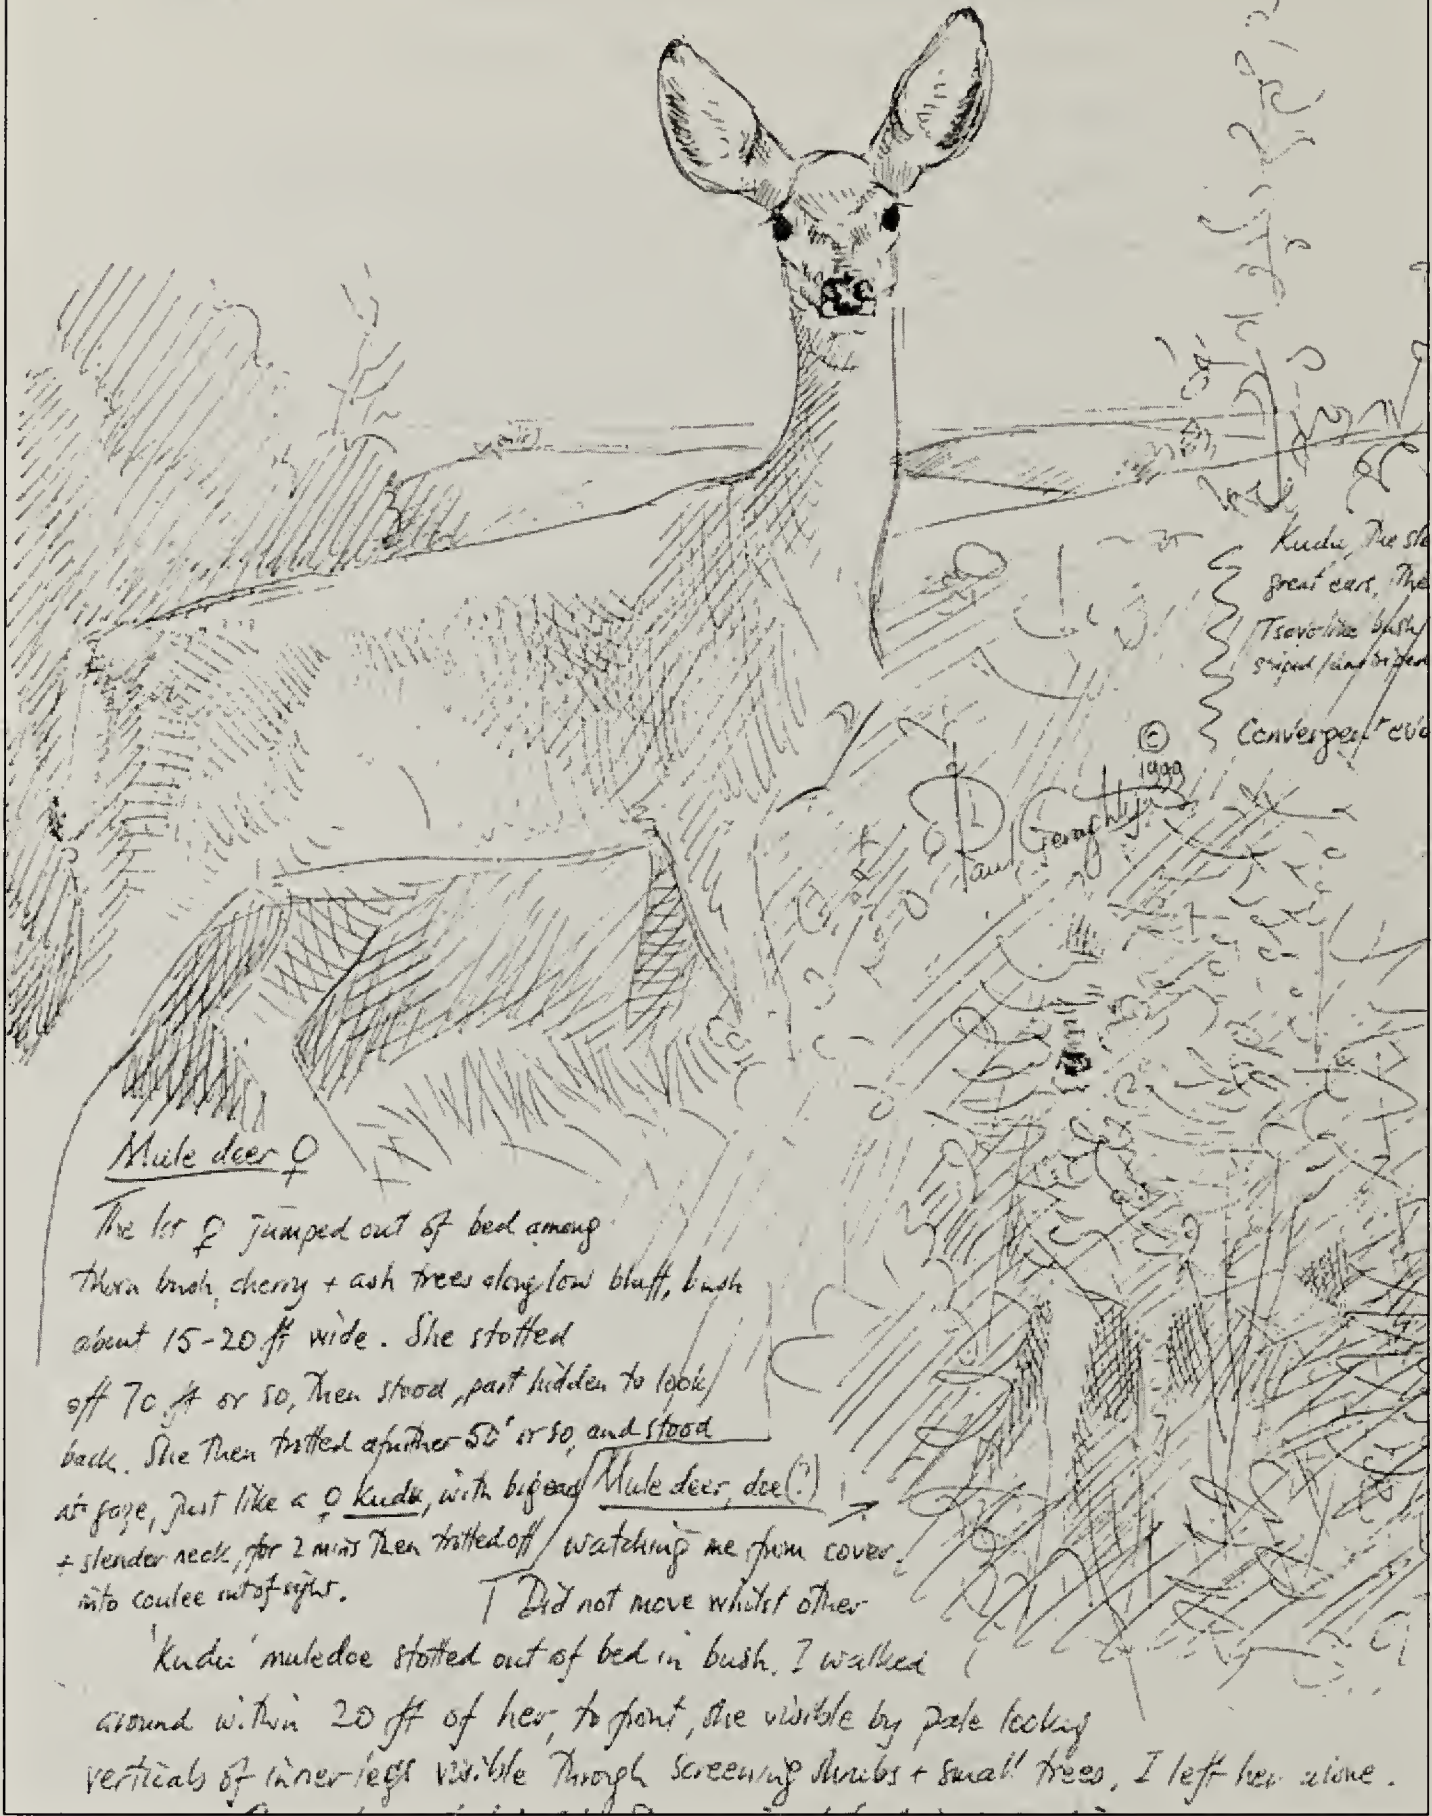 Kudu, The sle
great ears, The
Tsavo like bush
striped/unstriped
Convergent evo
© 1999
Paul Geraghty
Mule deer ♀
The 1st ♀ jumped out of bed among
thorn bush, cherry + ash trees along low bluff, bush
about 15-20 ft wide. She stotted
off 70 ft or so, then stood, part hidden to look
back. She then trotted a further 50' or so, and stood
at gaze, just like a ♀ Kudu, with big ears
+ slender neck, for 2 mins then trotted off
into coulee out of sight.
Mule deer, doe (?)
watching me from cover.
Did not move whilst other
'Kudu' muledoe stotted out of bed in bush. I walked
around within 20 ft of her, to front, she visible by pale looking
verticals of inner legs visible through screening shrubs + small trees, I left her alone.